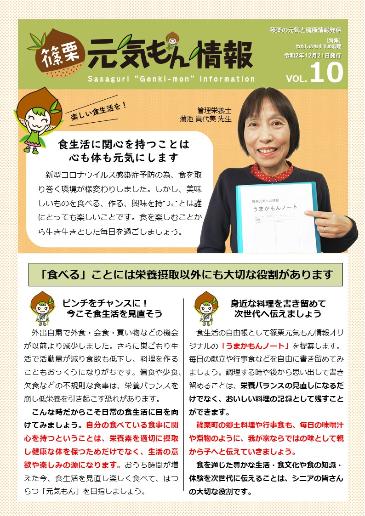 篠栗
元気もん情報
Sasaguri "Genki-mon" Information
令和2年12月21日発行
VOL.10
楽しい食生活を!
管理栄養士
先生
食生活に関心を持つことは
心も体も元気にします
新型コロナウイルス感染症予防の為、食を取
り巻く環境が様変わりしました。しかし、美味
しいものを食べる、作る、興味を持つことは誰
にとっても楽しいことです。食を楽しむことか
ら生き生きとした毎日を過ごしましょう。
うまかもんノート
「食べる」ことには栄養摂取以外にも大切な役割があります
ピンチをチャンスに!
今こそ食生活を見直そう
外出自粛で外食・会食・買い物などの機会
が以前より減少しました。さらに閉じこもり生
活で活動量が減り食欲も低下し、料理を作る
こともおっくうになりがちです。偏食や少食、
欠食などの不規則な食事は、栄養バランスを
崩し低栄養を引き起こす恐れがあります。
こんな時だからこそ日常の食生活に目を向
けてみましょう。自分の食べている食事に関
心を持つということは、栄養素を適切に摂取
し健康な体を保つためだけでなく、生活の意
欲や楽しみの源になります。おうち時間が増
えた今、食生活を見直し楽しく食べて、はつ
らつ「元気もん」を目指しましょう。
身近な料理を書き留めて
次世代へ伝えましょう
食生活の自由帳として篠栗元気もん情報オリ
ジナルの「うまかもんノート」を提案します。
毎日の献立や行事食などを自由に書き留めてみ
ましょう。調理する時や後から思い出して書き
留めることは、栄養バランスの見直しになるだ
けでなく、おいしい料理の記録として残すこと
ができます。
篠栗町の郷土料理や行事食も、毎日の味噌汁
や煮物のように、我が家ならではの味として親
から子へと伝えていきましょう。
食を通じた豊かな生活・食文化や食の知識・
体験を次世代に伝えることは、シニアの皆さん
の大切な役割です。